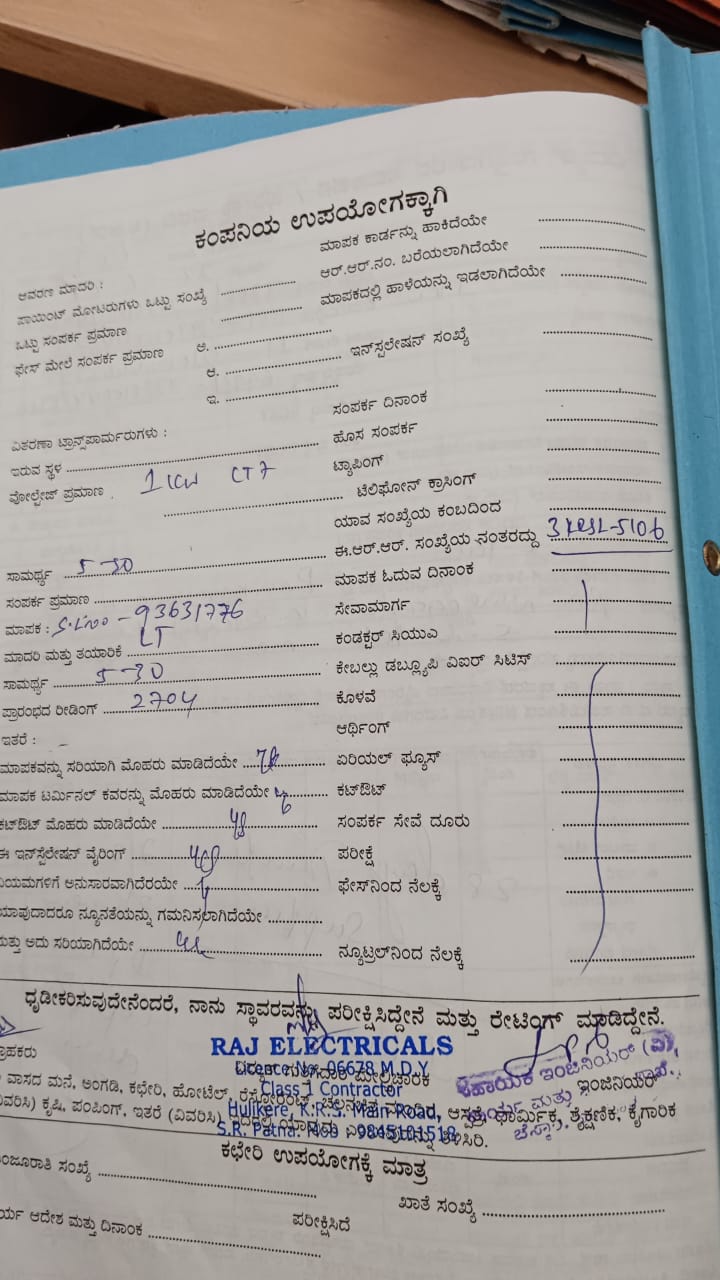 ಕಂಪನಿಯ ಉಪಯೋಗಕ್ಕಾಗಿ
ಆವರಣ ಮಾದರಿ :
ಮಾಪಕ ಕಾರ್ಡನ್ನು ಹಾಕಿದೆಯೇ
ಪಾಯಿಂಟ್ ಮೋಟರುಗಳು ಒಟ್ಟು ಸಂಖ್ಯೆ
ಆರ್.ಆರ್.ನಂ. ಬರೆಯಲಾಗಿದೆಯೇ
ಒಟ್ಟು ಸಂಪರ್ಕ ಪ್ರಮಾಣ
ಮಾಪಕದಲ್ಲಿ ಹಾಳೆಯನ್ನು ಇಡಲಾಗಿದೆಯೇ
ಫೇಸ್ ಮೇಲೆ ಸಂಪರ್ಕ ಪ್ರಮಾಣ ಅ.
ಆ. ಇನ್‌ಸ್ಟಲೇಷನ್ ಸಂಖ್ಯೆ
ಇ.
ಸಂಪರ್ಕ ದಿನಾಂಕ
ವಿತರಣಾ ಟ್ರಾನ್ಸ್‌ಪಾರ್ಮರುಗಳು :
ಹೊಸ ಸಂಪರ್ಕ
ಇರುವ ಸ್ಥಳ
ಟ್ಯಾಪಿಂಗ್
ವೋಲ್ಟೇಜ್ ಪ್ರಮಾಣ
ಟೆಲಿಫೋನ್ ಕ್ರಾಸಿಂಗ್
ಯಾವ ಸಂಖ್ಯೆಯ ಕಂಬದಿಂದ
ಸಾಮರ್ಥ್ಯ 5-30
ಈ.ಆರ್.ಆರ್. ಸಂಖ್ಯೆಯ ನಂತರದ್ದು
ಸಂಪರ್ಕ ಪ್ರಮಾಣ
ಮಾಪಕ ಓದುವ ದಿನಾಂಕ
ಮಾಪಕ : - 93631776
ಸೇವಾಮಾರ್ಗ
ಮಾದರಿ ಮತ್ತು ತಯಾರಿಕೆ LT
ಕಂಡಕ್ಟರ್ ಸಿಯುವಿ
ಸಾಮರ್ಥ್ಯ 5-30
ಕೇಬಲ್ಲು ಡಬ್ಲ್ಯೂಪಿ ವಿಐರ್ ಸಿಟಿಸ್
ಪ್ರಾರಂಭದ ರೀಡಿಂಗ್ 2704
ಕೊಳವೆ
ಇತರೆ : -
ಆರ್ಥಿಂಗ್
ಮಾಪಕವನ್ನು ಸರಿಯಾಗಿ ಮೊಹರು ಮಾಡಿದೆಯೇ
ಏರಿಯಲ್ ಫ್ಯೂಸ್
ಮಾಪಕ ಟರ್ಮಿನಲ್ ಕವರನ್ನು ಮೊಹರು ಮಾಡಿದೆಯೇ
ಕಟ್‌ಔಟ್
ಕಟ್‌ಔಟ್ ಮೊಹರು ಮಾಡಿದೆಯೇ
ಸಂಪರ್ಕ ಸೇವೆ ದೂರು
ಈ ಇನ್‌ಸ್ಟಲೇಷನ್ ವೈರಿಂಗ್
ಪರೀಕ್ಷೆ
ಅನುಸಾರವಾಗಿದೆರಯೇ
ಫೇಸ್‌ನಿಂದ ನೆಲಕ್ಕೆ
ನ್ಯೂನತೆಯನ್ನು ಗಮನಿಸಲಾಗಿದೆಯೇ
ಅದು ಸರಿಯಾಗಿದೆಯೇ
ನ್ಯೂಟ್ರಲ್‌ನಿಂದ ನೆಲಕ್ಕೆ
ಧೃಡೀಕರಿಸುವುದೇನೆಂದರೆ, ನಾನು ಸ್ಥಾವರವನ್ನು ಪರೀಕ್ಷಿಸಿದ್ದೇನೆ ಮತ್ತು ರೇಟಿಂಗ್ ಮಾಡಿದ್ದೇನೆ.
RAJ ELECTRICALS
Licence No. 06678 M.D.Y
Class 1 Contractor
Hulikere, K.R.S. Main Road,
S.R. Patna. Mob : 9845101518
ಸಹಾಯಕ ಇಂಜಿನಿಯರ್ (ವಿ),
ಇಂಜಿನಿಯರ್
ವಾಸದ ಮನೆ, ಅಂಗಡಿ, ಕಛೇರಿ, ಹೋಟೆಲ್, ಧಾರ್ಮಿಕ, ಶೈಕ್ಷಣಿಕ, ಕೈಗಾರಿಕ
ಕೃಷಿ, ಪಂಪಿಂಗ್, ಇತರೆ (ವಿವರಿಸಿ)
ಕಛೇರಿ ಉಪಯೋಗಕ್ಕೆ ಮಾತ್ರ
ಸಂಖ್ಯೆ
ಖಾತೆ ಸಂಖ್ಯೆ
ಆದೇಶ ಮತ್ತು ದಿನಾಂಕ
ಪರೀಕ್ಷಿಸಿದೆ